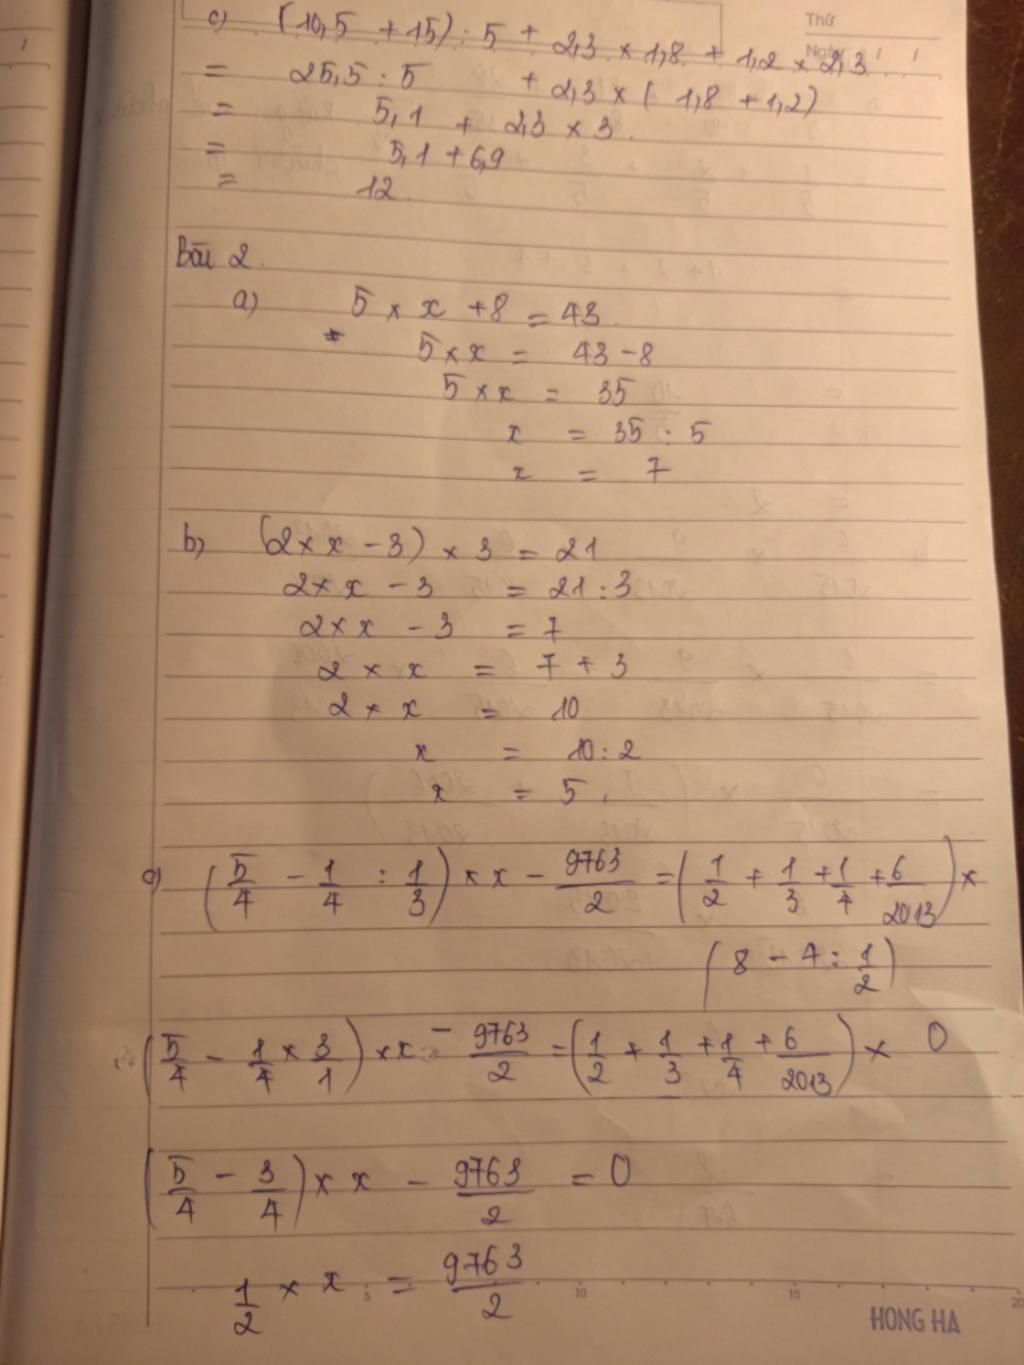 Thứ
Ngày
c) (10,5 + 15) : 5 + 2,3 × 1,8 + 1,2 × 2,3
= 25,5 : 5 + 2,3 × ( 1,8 + 1,2)
= 5,1 + 2,3 × 3.
= 5,1 + 6,9
= 12.
Bài 2.
a) 5 × x + 8 = 43.
5 × x = 43 - 8
5 × x = 35
x = 35 : 5
x = 7
b) (2 × x - 3) × 3 = 21
2 × x - 3 = 21 : 3
2 × x - 3 = 7
2 × x = 7 + 3
2 × x = 10
x = 10 : 2
x = 5.
c) (5/4 - 1/4 : 1/3) × x - 9763/2 = (1/2 + 1/3 + 1/4 + 6/2013) ×
(8 - 4 : 1/2)
(5/4 - 1/4 × 3/1) × x - 9763/2 = (1/2 + 1/3 + 1/4 + 6/2013) × 0
(5/4 - 3/4) × x - 9763/2 = 0
1/2 × x = 9763/2
5 10 15 20
HONG HA